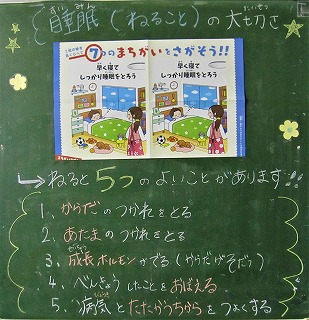 睡眠(ねること)の大切さ
すいみん
たいせつ
7つのまちがいをさがそう!!
早く寝て
しっかり睡眠をとろう
早く寝て
しっかり睡眠をとろう
ねると5つのよいことがあります!!
1、からだのつかれをとる
2、あたまのつかれをとる
3、成長ホルモンがでる(からだがそだつ)
4、べんきょうしたことをおぼえる
5、病気とたたかうちからをつよくする